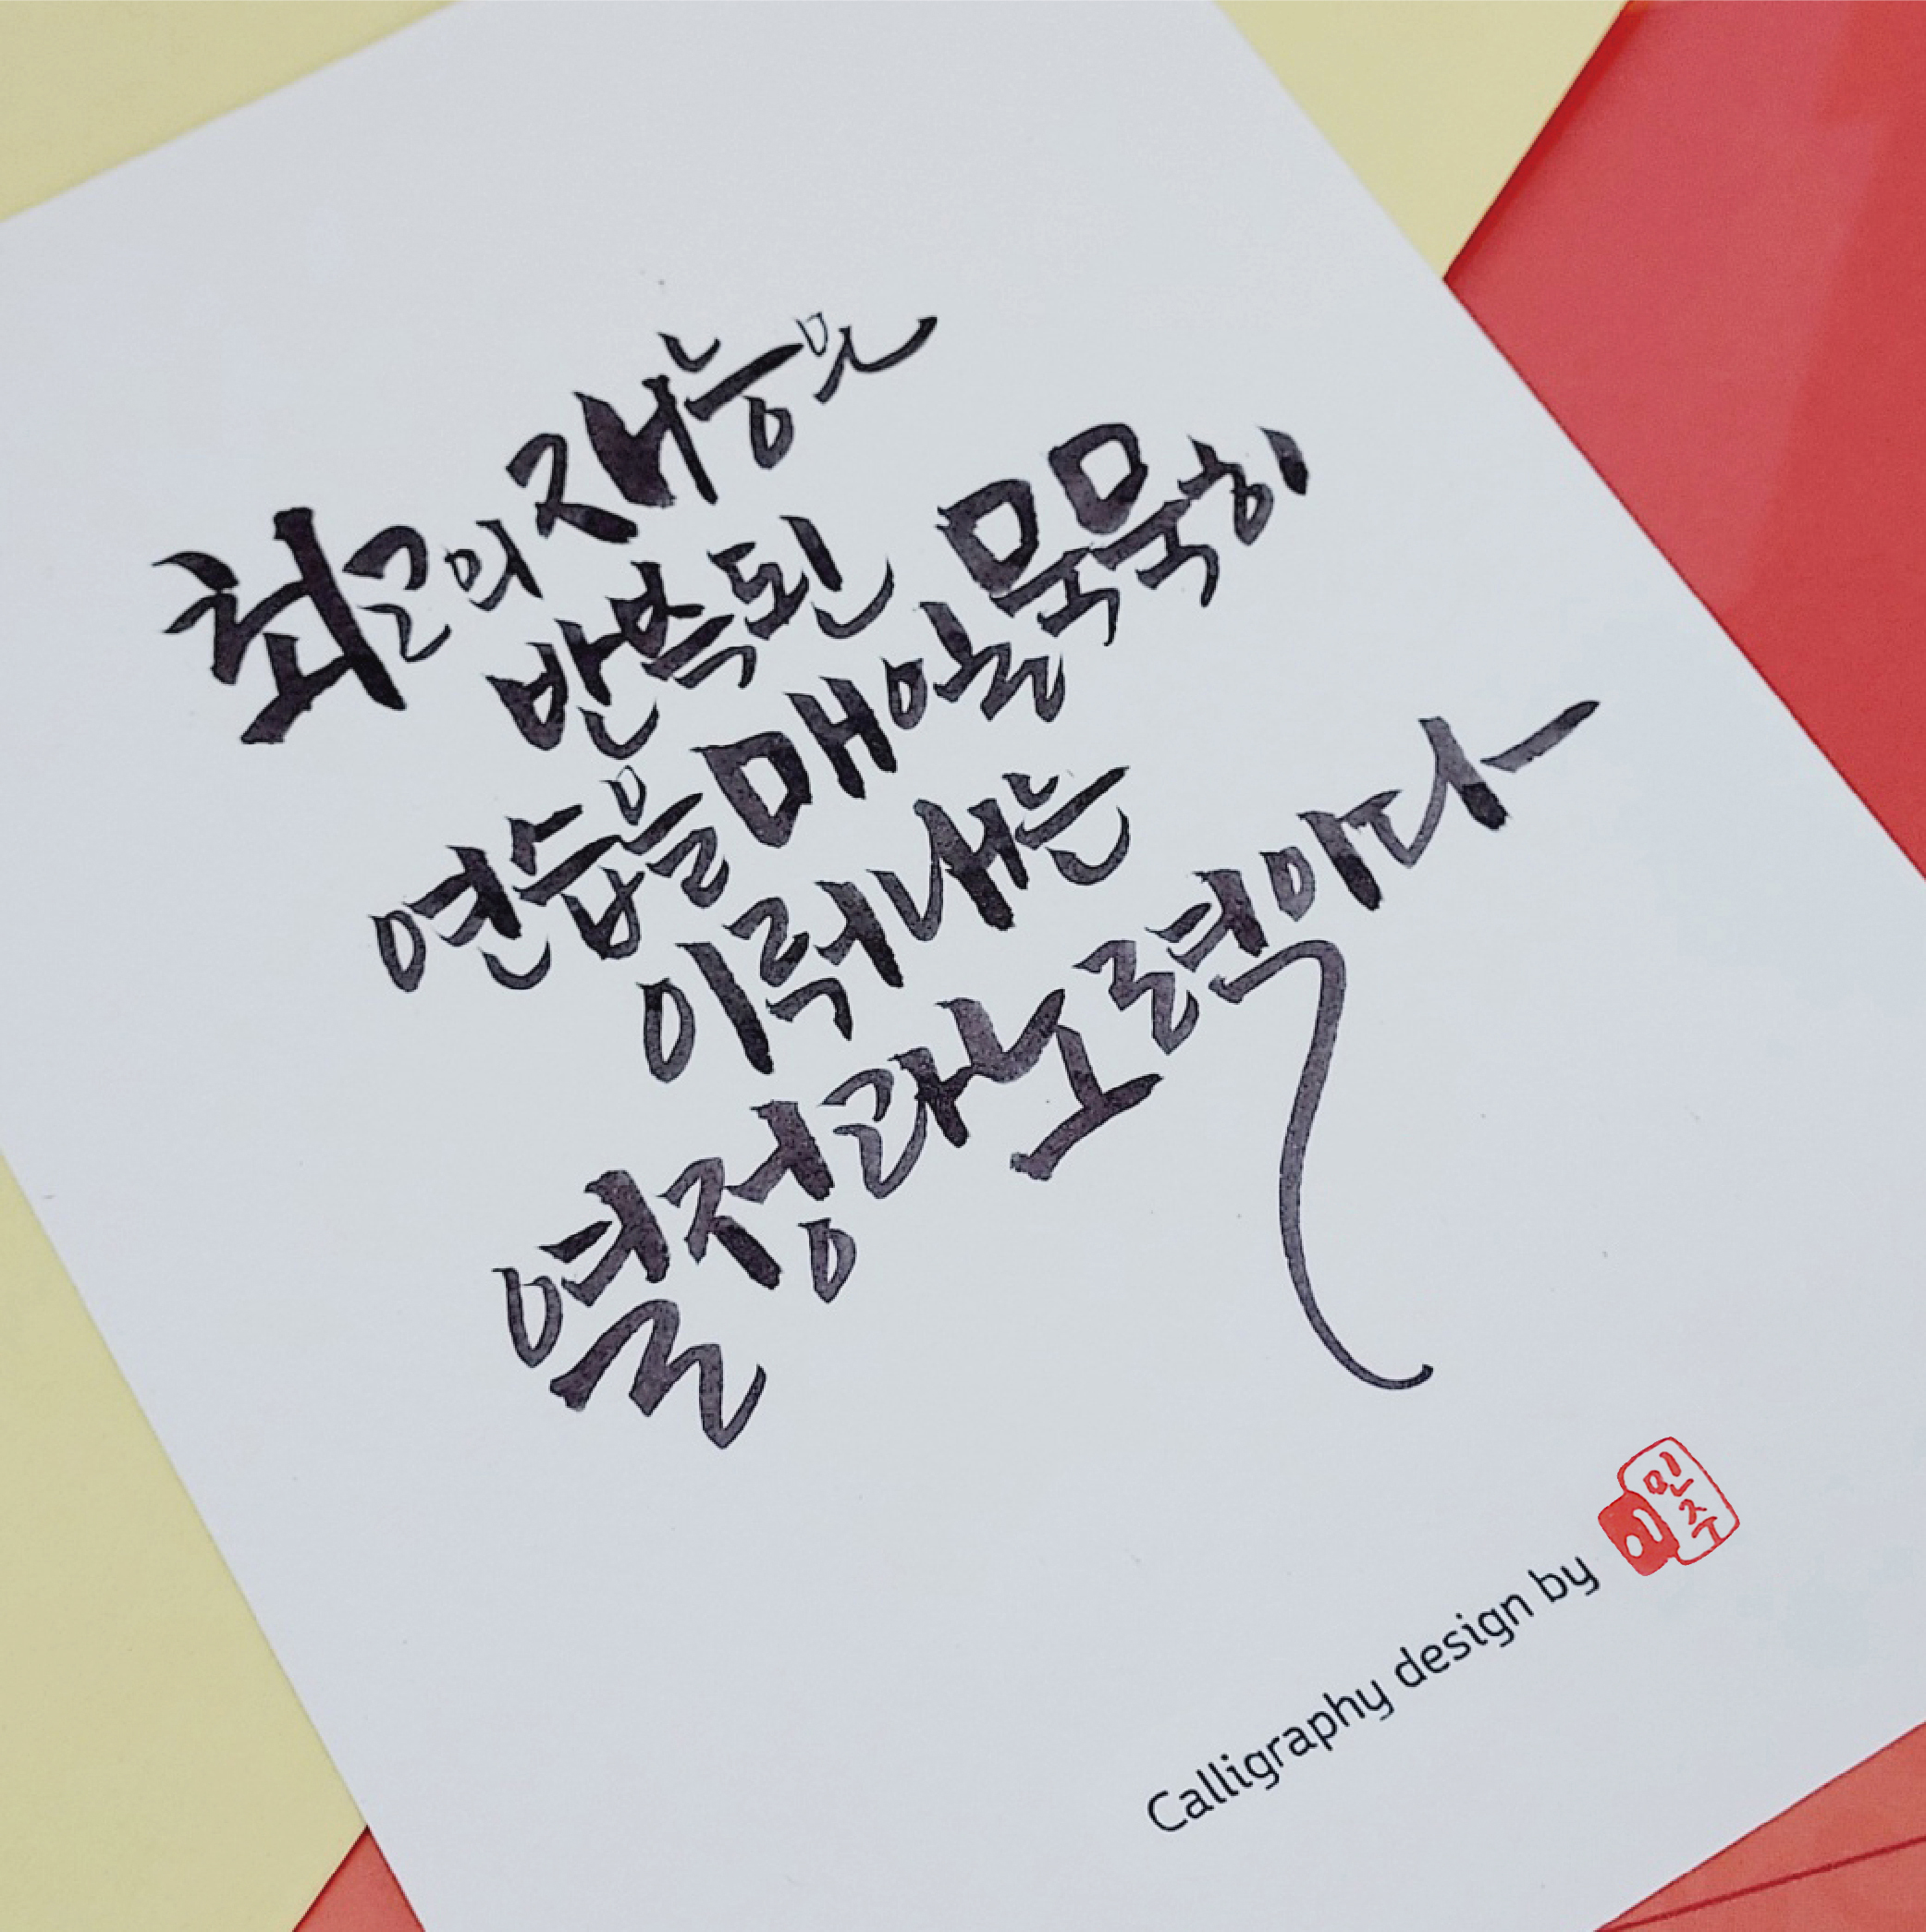 최고의 재능은
반복된
연습을 매일을 묵묵히
이뤄내는
열정과 노력이다
Calligraphy design by
이민주